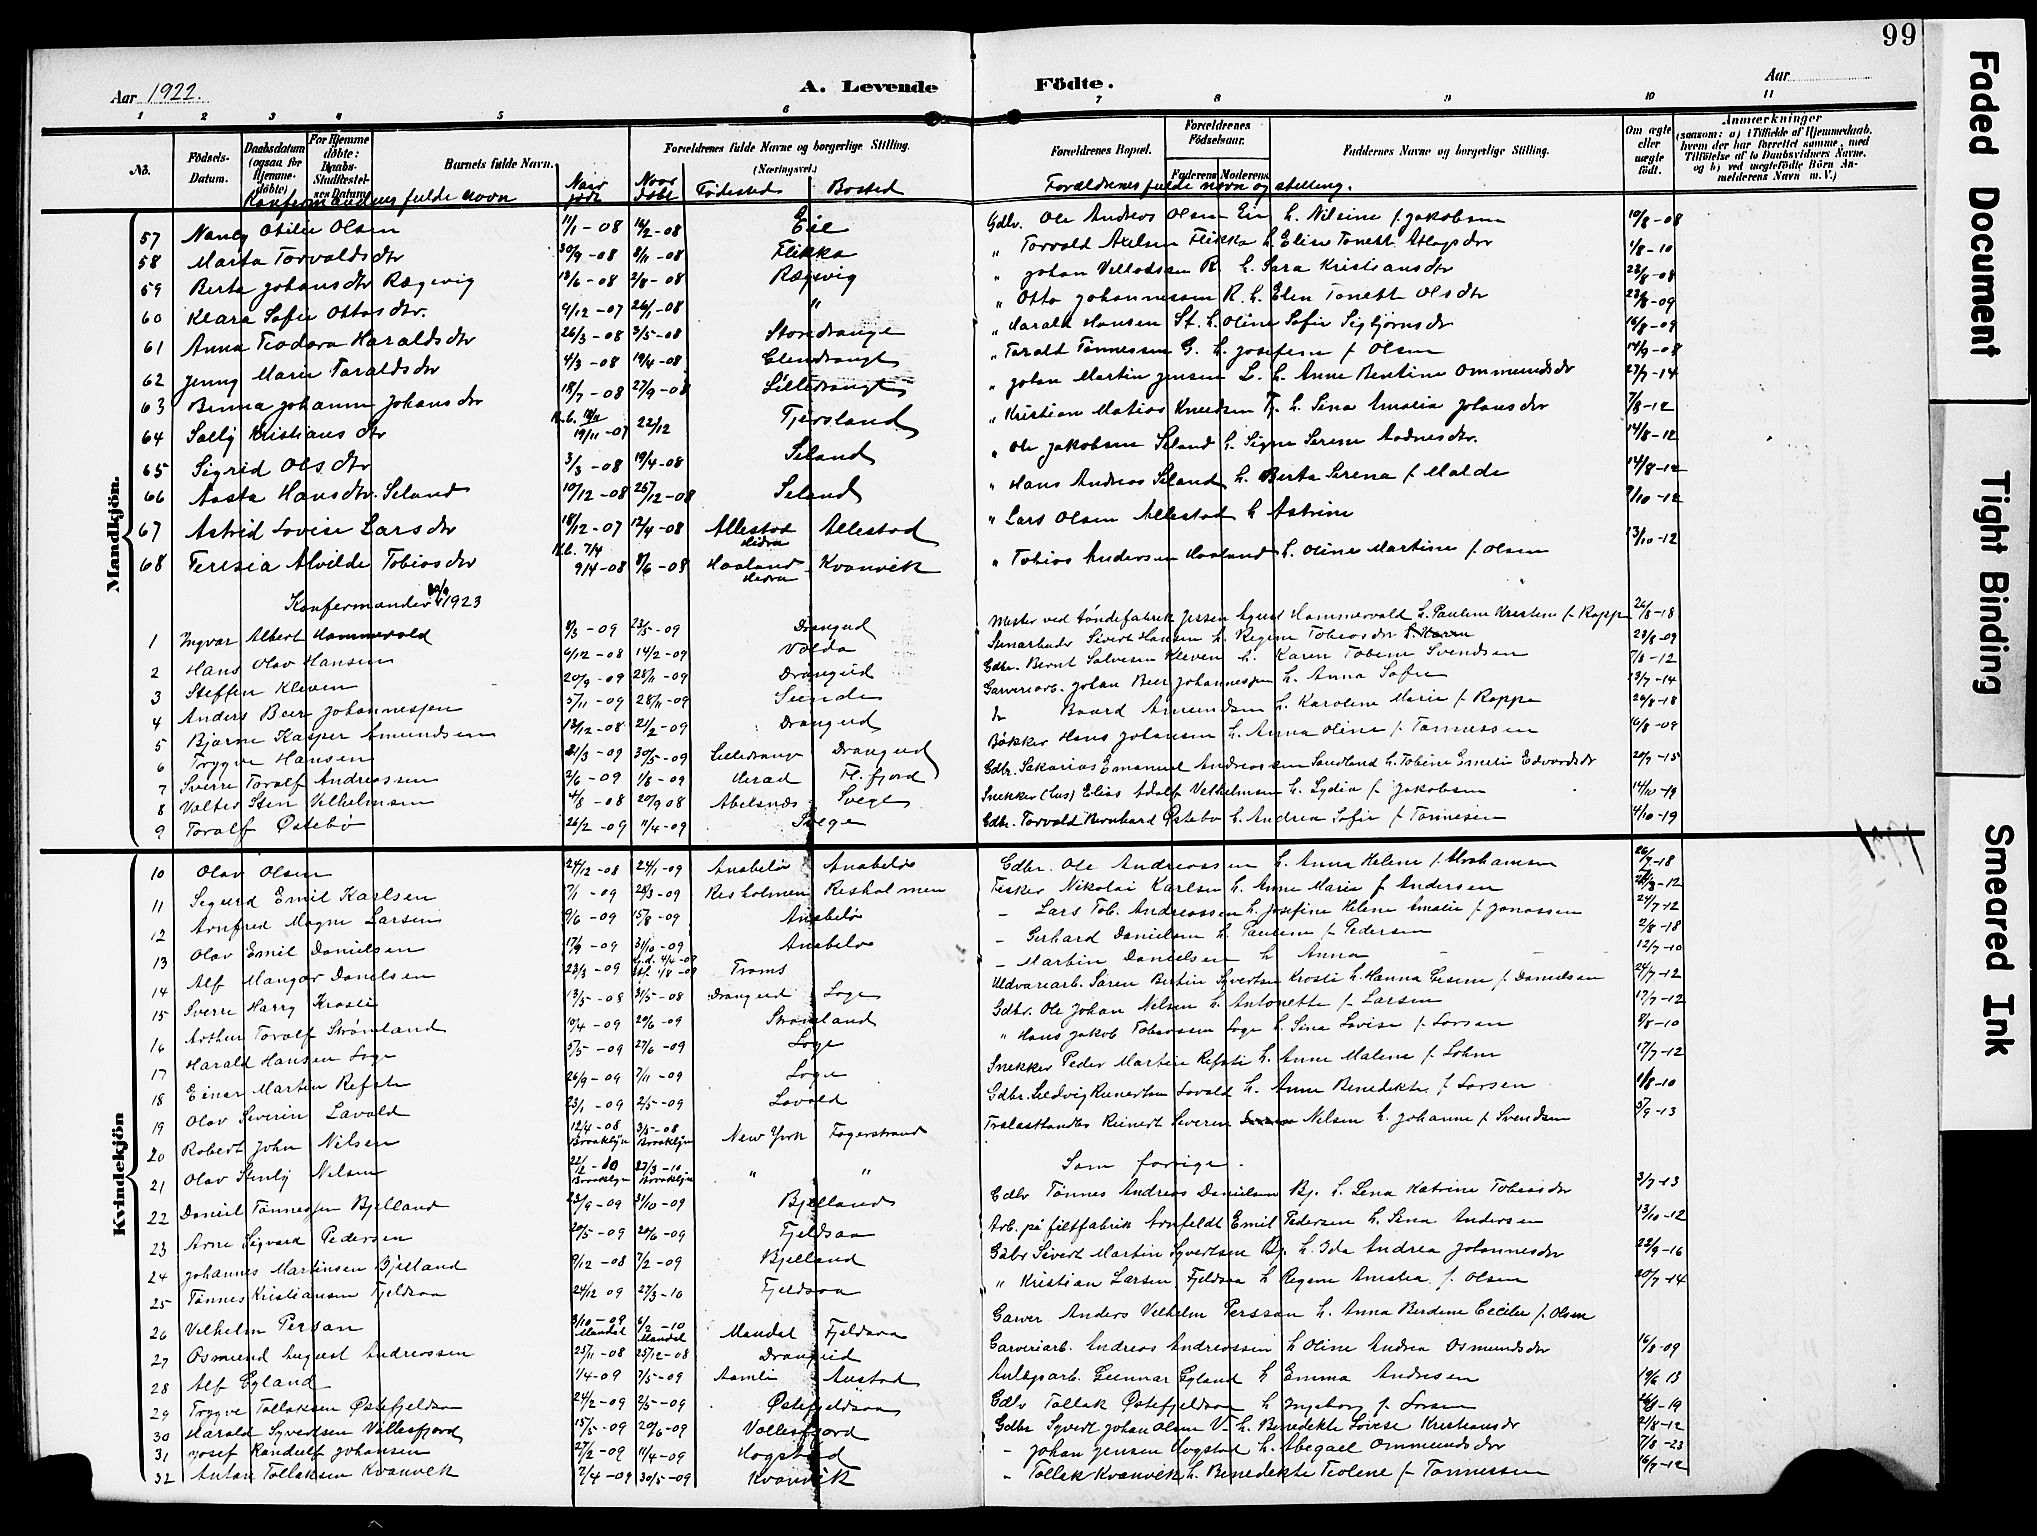 99
Aar 1922.
A. Levende Födte.
Aar
1 2 3 4 5 6 7 8 9 10 11
No. Födsels-Datum. Daabsdatum (ogsaa for Hjemmedöbte) For Hjemmedöbte: Daabs-Stadfæstelses Datum Barnets fulde Navn. Forældrenes fulde Navne og borgerlige Stilling. (Næringsvei.) Forældrenes Bopæl. Forældrenes Födselsaar. Faderens Moderens Faddernes Navne og borgerlige Stilling. Om ægte eller uægte födt. Anmærkninger (saasom: a) i Tilfælde af Hjemmedaab, hvem der har forrettet samme, med Tilföielse af to Daabsvidners Navne, og b) ved uægtefödte Börn Anmelderens Navn m. V.)
Konfermandens fulde navn Naar født Naar døbt Fødested Bosted Forældrenes fulde navn og stilling.
Mandkjön.
57 Nancy Otilie Olsen 11/1-08 16/2-08 Eie Gdbr. Ole Andreas Olsen Eie h. Nilsine f. Jakobsen 10/8-08
58 Marta Torvaldsdtr 30/9-08 8/11-08 Flikka " Torvald Axelsen Flikka h. Elise Tonett Atlagsdtr 1/8-10
59 Berta Johansdtr Rægevig 13/6-08 2/8-08 Rægevig " Johan Vellodsen R. h. Sara Kristiansdtr 28/8-08
60 Klara Sofie Ottosdtr. 9/12-07 26/1-08 " " Otto Johannessen R. h. Elen Tonette Olsdtr 28/8-09
61 Anna Teodora Haraldsdtr 26/3-08 3/5-08 Storedrange " Harald Hansen St. h. Oline Sofie Sigbjørnsdtr 16/8-09
62 Jenny Marie Taraldsdtr 4/3-08 19/4-08 Glendrange " Tarald Tønnessen G. h. Josefine f. Olsen 14/9-08
63 Benna Johanne Johansdtr 18/7-08 27/9-08 Lilledrange " Johan Martin Jensen L. h. Anne Bertine Ommundsdtr 27/7-14
64 Solly Kristiansdtr 19/11-07 22/12 Tjørsland " Kristian Matias Knudsen Tj. h. Sina Amalia Johansdtr 7/8-12
65 Sigrid Olsdtr 3/3-08 19/4-08 Seland " Ole Jakobsen Seland h. Signe Serine Aadnesdtr. 14/8-12
66 Aasta Hansdtr. Seland 10/12-08 25/12-08 Seland " Hans Andreas Seland h. Berta Serena f. Malde 14/8-12
67 Astrid Lovise Larsdtr 18/12-07 12/4-08 Allestad Hidra Allestad " Lars Olsen Allestad h Astrine 9/10-12
68 Teresia Alvilde Tobiasdtr 9/4-08 8/6-08 Haaland Hidra Kvanvik " Tobias Andersen Haaland h. Oline Martine f. Olsen 13/10-12
Konfermander 1923
1 Yngvar Albert Hammervold 8/3-09 23/5-09 Drangeid Mester ved tøndefabrik Jessen August Hammervold h. Pauline Kristine f. Roppe 26/8-18
2 Hans Olav Hansen 6/12-08 14/2-09 Volda Stenarbeider Sivert Hansen h. Regine Tobiasdtr 23/8-09
3 Steffen Kleven 20/9-09 28/11-09 Drangeid Gdbr. Bernt Salvesen Kleven h. Karen Tobine Svendsen 7/8-12
4 Anders Beer Johannesjen 5/11-09 28/11-09 Sunde Garveriarb. Johan Beer Johannesjen h. Anna Sofie 13/7-14
5 Bjarne Kasper Amundsen 13/12-08 21/2-09 Drangeid do Baard Amundsen h. Karoline Marie f. Roppe 26/8-18
6 Trygve Hansen 21/3-09 30/5-09 Lilledrange Drangeid Bøkker Hans Johansen h. Anna Oline f. Tønnessen 16/8-09
7 Sverre Toralf Andreassen 2/6-09 1/8-09 Herad Fl. fjord Gdbr. Sakarias Emanuel Andreassen Sandland h. Tobine Emelie Edvardsdtr 20/7-15
8 Valter Sten Vilhelmsen 4/8-08 20/9 08 Abelsnæs Svege Snekker (Lus) Elias Adolf Vilhelmsen h. Lydia f. Jakobsen 14/10-19
9 Toralf Østebø 26/2-09 11/4-09 Svege Gdbr. Torvald Bernhard Østebø h. Andrea Sofie f. Tønnesen 4/10-19
Kvindekjön
10 Olav Olsen 24/12-08 24/1-09 Anabeløe Anabeløe Gdbr. Ole Andreassen h. Anna Helene f. Abrahamsen 26/7-18
11 Sigurd Emil Karlsen 7/1-09 28/3-09 Resholmen Resholmen Fisker Nikolai Karlsen h. Anne Marie f. Andersen
12 Arnfred Magne Larsen 9/6-09 15/8-09 Anabeløe - Lars Tob. Andreassen h. Josefine Helene Amalie f. Jonassen 24/7-12
13 Olav Emil Danielsen 17/9-09 31/10-09 Anabeløe - Gerhard Danielsen h. Pauline f. Pedersen 2/8-18
14 Alf Mangor Danielsen 23/3-09 Troms - Martin Danielsen h Anna 12/7-10
15 Sverre Harry Krosli 13/5-08 31/5-08 Drangeid Loge Uldvariarb. Søren Bertin Syvertsen Krosli h. Hanna Gesine f. Danielsen 24/7-12
16 Arthur Toralf Strømland 10/4-09 20/6-09 Strømland Gdbr. Ole Johan Nilsen h. Antonette f. Larsen 17/7-12
17 Harald Hansen Loge 5/5-09 27/6-09 Loge " Hans Jakob Tobiassen Loge h. Sina Lovise f. Larsen 8/8-10
18 Einar Martin Refsti 26/9-09 7/11-09 Loge Snekker Peder Martin Refsti h. Anne Malene f. Lohne 17/7-12
19 Olav Severin Lavold 23/1-09 2/5-09 Lavold Gdbr. Ludvig Reinertsen Lavold h. Anne Benedikte f. Larsen 1/8-10
20 Robert John Nilsen 12/4-08 Brooklyn 3/5-08 Brooklyn New York Fagerstrand Trælasthandler Reinert Severin Nilsen h. Johanne f. Svendsen 5/9-13
21 Olav Stenly Nilsen 22/2-10 Brooklyn 27/3-10 Brooklyn " " Som forrige.
22 Daniel Tønnessen Bjelland 23/9-09 31/10-09 Bjelland Gdbr Tønnes Andreas Danielsen Bj. h. Lena Katrine Tobiasdtr 3/7-13
23 Arne Sigvard Pedersen 20/5-09 20/6-09 Fjeldsaa Arb. på filtfabrik Arnfeldt Emil Pedersen h. Sina Andersen 13/10-12
24 Johannes Martinsen Bjelland 9/12-08 7/2-09 Bjelland Gdbr Sivert Martin Syvertsen Bj. h. Ida Andrea Johannesdtr 23/9-16
25 Tønnes Kristiansen Fjeldsaa 24/12 09 27/3-10 Fjeldsaa " Kristian Larsen Fjeldsaa h Regine Amalia f. Olsen 20/7-14
26 Vilhelm Persan 3/10-09 Mandal 6/2-10 Mandal Mandal Fjeldsaa Garver Anders Vilhelm Perssan h. Anna Berdine Cecilie f. Olsen
27 Osmund August Andreassen 25/11-08 25/12-08 Drangeid Garveriarb. Andreas Andreassen h Oline Andrea Osmundsdtr 16/8-09
28 Alf Egland 1/4-09 7/5-09 Aamli Austad Anlægsarb. Gunnar Egland h Emma Andresen 19/6 13
29 Trygve Tollaksen Østefjeldsaa 24/2-09 2/5-09 Østefjeldsaa Gdbr Tollak Østefjeldsaa h Ingeborg f Larsen
30 Harald Syvertsen Vollesfjord 15/5-09 20/6-09 Vollesfjord Gdbr Syvert Johan Olsen V- h. Benedikte Lovise Kristiansdtr 21/8-12
31 Josef Randulf Johansen 27/2-09 11/4-09 Hogstad - Johan Jensen Hogstad h. Abegael Ommundsdtr 7/8-23
32 Anton Tollaksen Kvanvik 2/4-09 30/5-09 Kvanvik - Tollak Kvanvik h. Benedikte Teoline f. Tønnessen 16/7-12
Faded Document
Tight Binding
Smeared Ink